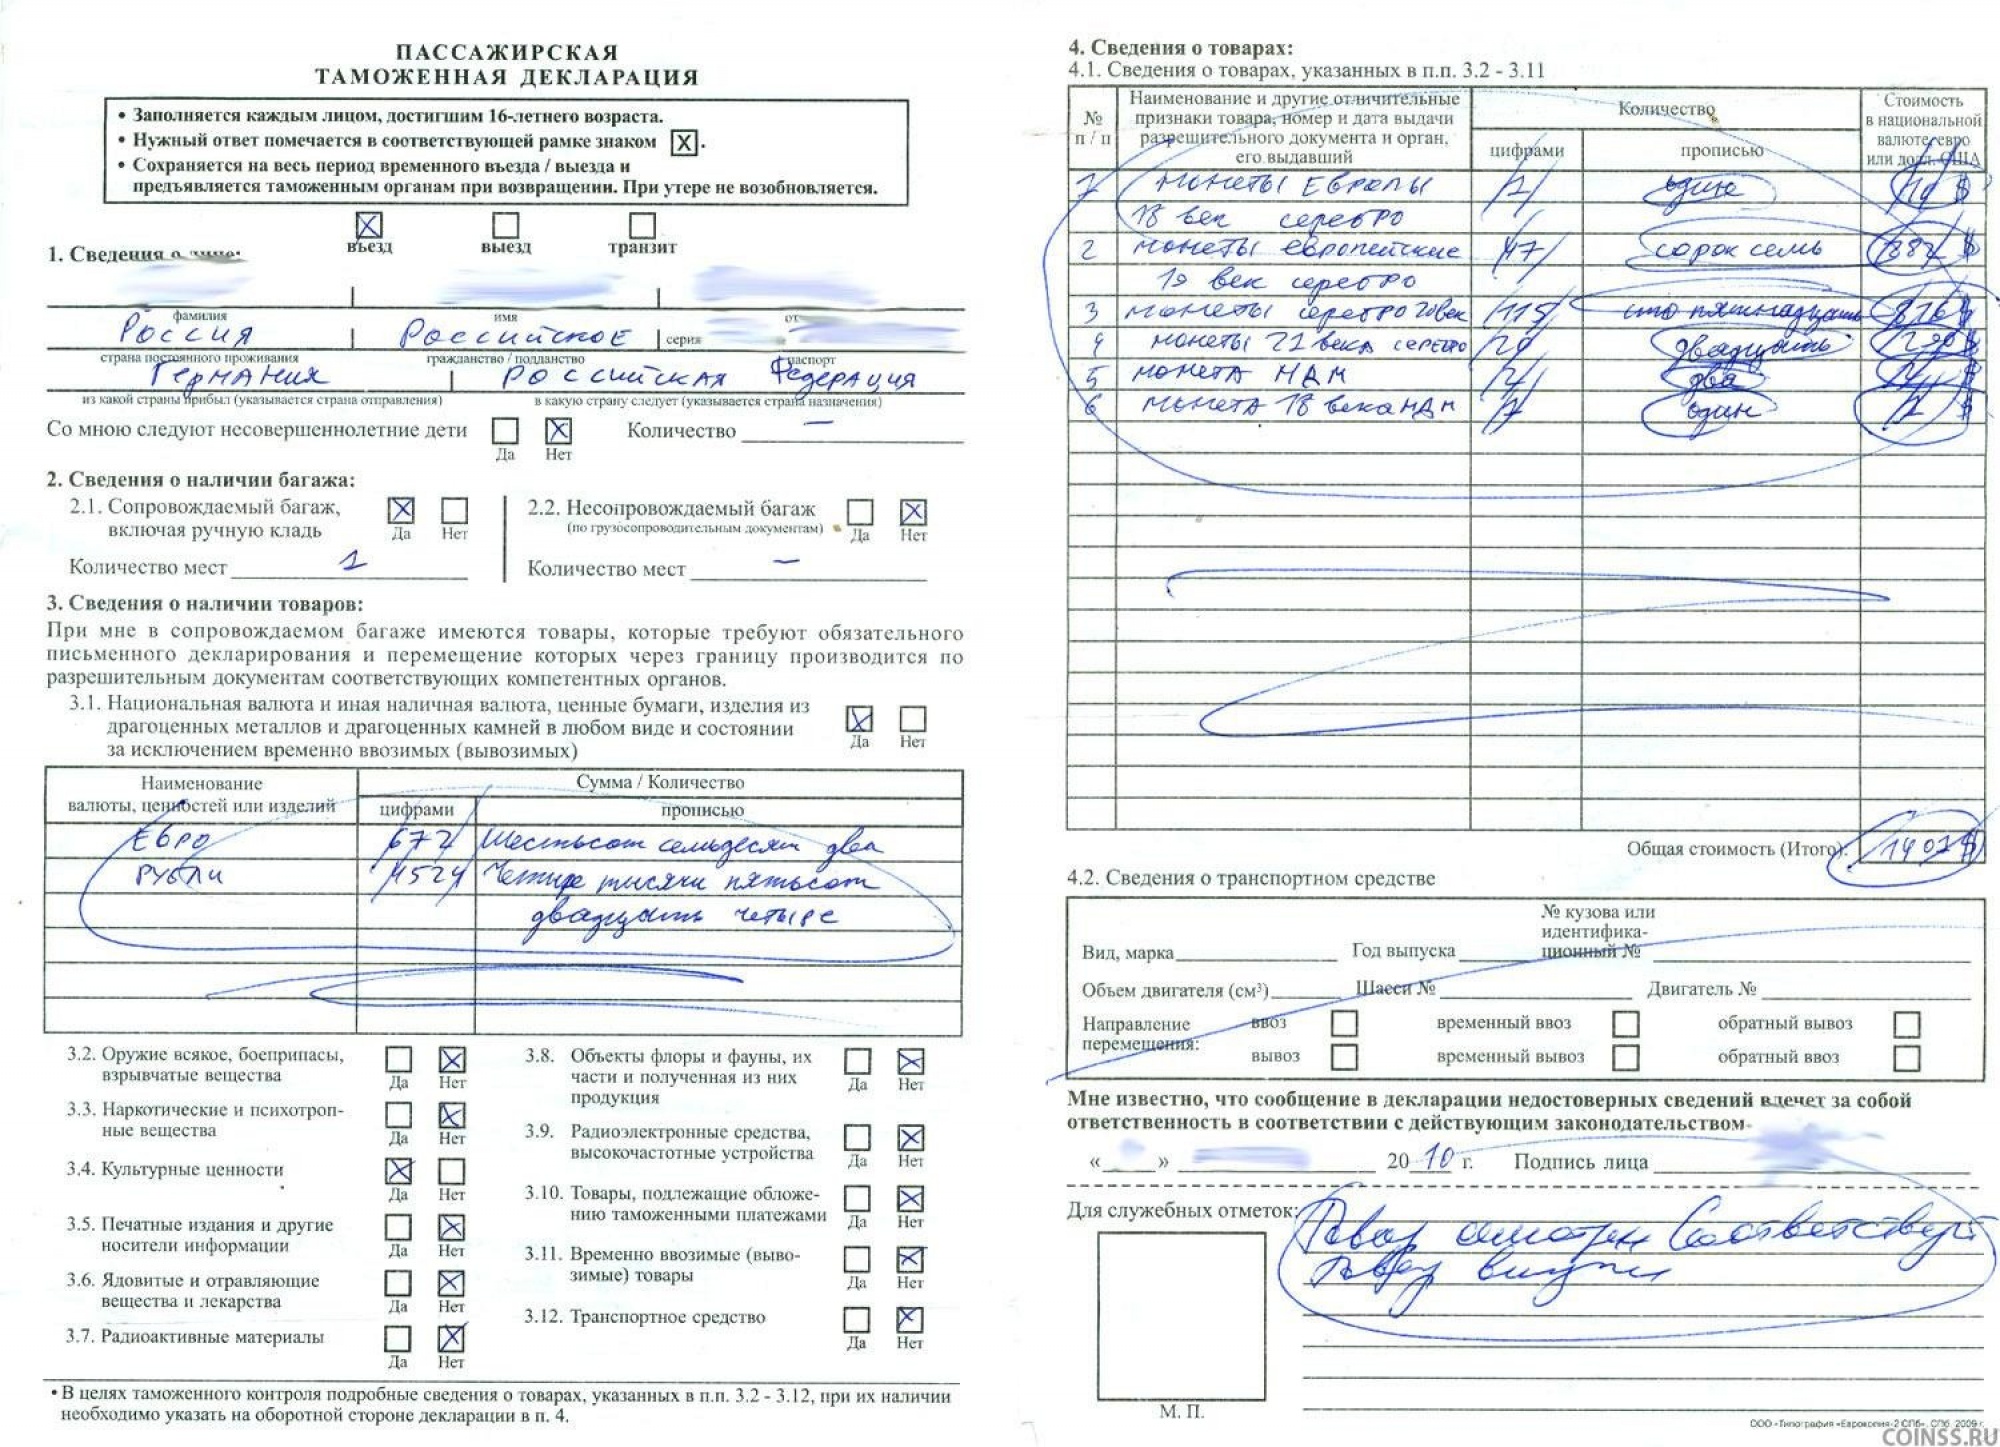 ПАССАЖИРСКАЯ
ТАМОЖЕННАЯ ДЕКЛАРАЦИЯ
• Заполняется каждым лицом, достигшим 16-летнего возраста.
• Нужный ответ помечается в соответствующей рамке знаком X.
• Сохраняется на весь период временного въезда / выезда и
предъявляется таможенным органам при возвращении. При утере не возобновляется.
X
въезд выезд транзит
1. Сведения о лице:
фамилия имя от
Россия Российское серия
страна постоянного проживания гражданство / подданство паспорт
Германия Российская Федерация
из какой страны прибыл (указывается страна отправления) в какую страну следует (указывается страна назначения)
Со мною следуют несовершеннолетние дети X Количество —
Да Нет
2. Сведения о наличии багажа:
2.1. Сопровождаемый багаж, X
включая ручную кладь Да Нет
Количество мест 1
2.2. Несопровождаемый багаж X
(по грузосопроводительным документам) Да Нет
Количество мест —
3. Сведения о наличии товаров:
При мне в сопровождаемом багаже имеются товары, которые требуют обязательного
письменного декларирования и перемещение которых через границу производится по
разрешительным документам соответствующих компетентных органов.
3.1. Национальная валюта и иная наличная валюта, ценные бумаги, изделия из
драгоценных металлов и драгоценных камней в любом виде и состоянии X
за исключением временно ввозимых (вывозимых) Да Нет
Наименование Сумма / Количество
валюты, ценностей или изделий цифрами прописью
Евро 672 Шестьсот семьдесят два
Рубли 4524 Четыре тысячи пятьсот
двадцать четыре
3.2. Оружие всякое, боеприпасы, X
взрывчатые вещества Да Нет
3.3. Наркотические и психотроп- X
ные вещества Да Нет
3.4. Культурные ценности X
Да Нет
3.5. Печатные издания и другие X
носители информации Да Нет
3.6. Ядовитые и отравляющие X
вещества и лекарства Да Нет
3.7. Радиоактивные материалы X
Да Нет
3.8. Объекты флоры и фауны, их X
части и полученная из них Да Нет
продукция
3.9. Радиоэлектронные средства, X
высокочастотные устройства Да Нет
3.10. Товары, подлежащие обложе- X
нию таможенными платежами Да Нет
3.11. Временно ввозимые (выво- X
зимые) товары Да Нет
3.12. Транспортное средство X
Да Нет
• В целях таможенного контроля подробные сведения о товарах, указанных в п.п. 3.2 - 3.12, при их наличии
необходимо указать на оборотной стороне декларации в п. 4.
4. Сведения о товарах:
4.1. Сведения о товарах, указанных в п.п. 3.2 - 3.11
№ п / п
Наименование и другие отличительные
признаки товара, номер и дата выдачи
разрешительного документа и орган,
его выдавший
Количество
цифрами прописью
Стоимость
в национальной
валюте, евро
или долл. США
1 монеты Европы 1 один $
18 век серебро
2 монеты европейские 47 сорок семь 387 $
19 век серебро
3 монеты серебро 20 век 115 сто пятнадцать $
4 монеты 21 века серебро 20 двадцать $
5 монета НДМ 2 два $
6 монета 18 века НДМ 1 один $
Общая стоимость (Итого): 1407 $
4.2. Сведения о транспортном средстве
Вид, марка Год выпуска № кузова или
идентифика-
ционный №
Объем двигателя (см³) Шасси № Двигатель №
Направление ввоз временный ввоз обратный вывоз
перемещения: вывоз временный вывоз обратный ввоз
Мне известно, что сообщение в декларации недостоверных сведений влечет за собой
ответственность в соответствии с действующим законодательством
« » 2010 г. Подпись лица
Для служебных отметок: Товар смотрен Соответствует
Товар
М. П.
ООО «Типография «Еврокопия-2 СПб», СПб, 2009 г.
COINSS.RU